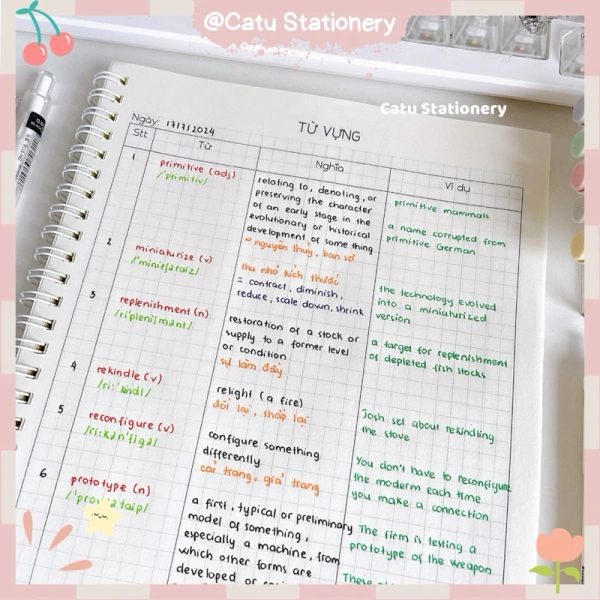 @Catu Stationery
Catu Stationery
Ngày: 17/7/2024
TỪ VỰNG
Stt
Từ
Nghĩa
Ví dụ
1
primitive (adj)
/'primitiv/
relating to, denoting, or
preserving the character
of an early stage in the
evolutionary or historical
development of something
→ nguyên thuỷ, ban sơ
primitive mammals
a name corrupted from
primitive German
2
miniaturize (v)
/'minitʃəraiz/
thu nhỏ kích thước
= contract, diminish,
reduce, scale down, shrink
the technology evolved
into a miniaturized
version
3
replenishment (n)
/ri'pleniʃmənt/
restoration of a stock or
supply to a former level
or condition
sự làm đầy
a target for replenishment
of depleted fish stocks
4
rekindle (v)
/ri:'kindl/
relight (a fire)
đốt lại, thắp lại
Josh set about rekindling
the stove
5
reconfigure (v)
/ri:kən'figə/
configure something
differently
cải trang, giả trang
You don't have to reconfigure
the moderm each time
you make a connection
6
prototype (n)
a first, typical or preliminary
model of something,
especially a machine, from
which other forms are
developed or
The firm is testing a
prototype of the weapon